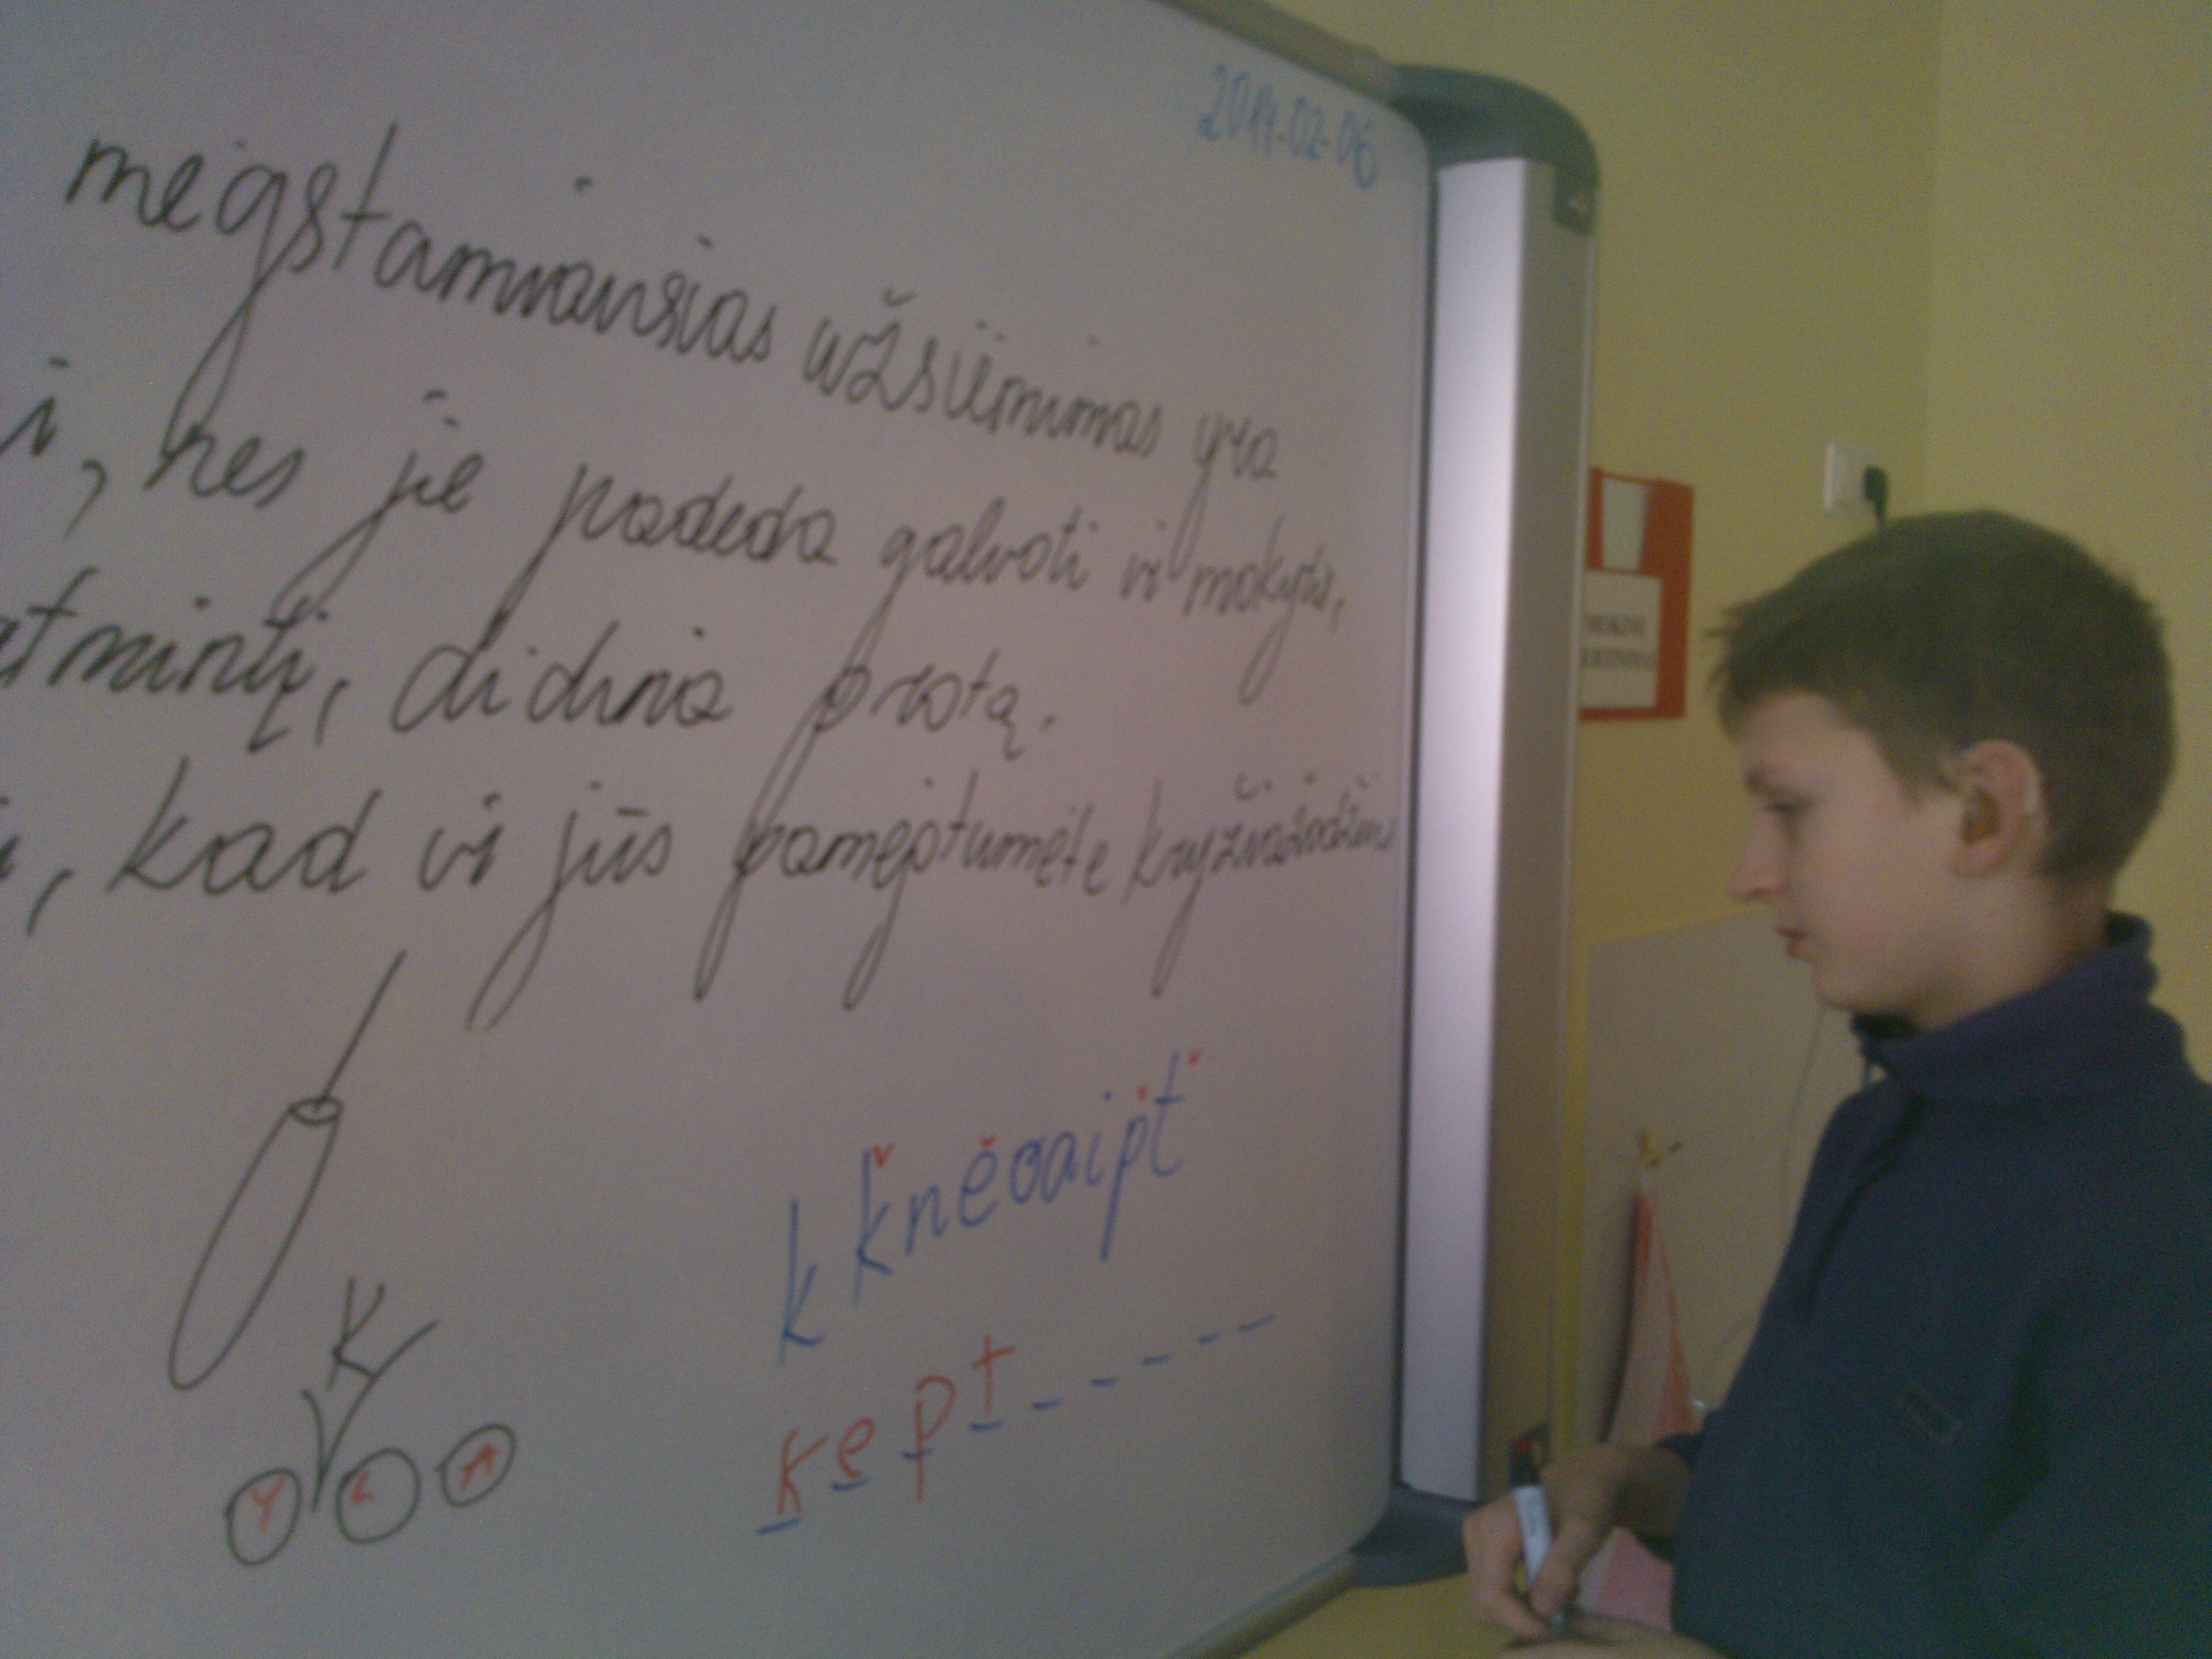 2014-02-06
mėgstamiausias užsiėmimas yra
i, nes jie padeda galvoti ir mokytis,
atmintį, didina protą.
, kad ir jūs pamėgtumėte kryžiažodžius
k knėoaipt
kept_ _ _ _ _
K
Y L A